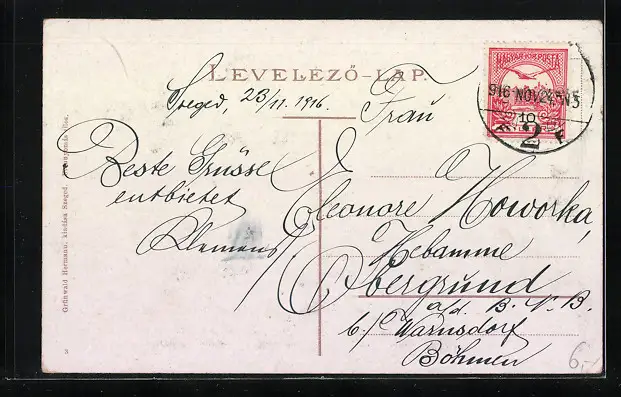 LEVELEZŐ-LAP.
Szeged, 23/11. 1916.
Beste Grüsse
entbietet
Klemens
Frau
Eleonore Howorka,
Hebamme
Obergrund
a/d. B. N. B.
b./ Warnsdorf
Böhmen
MAGYAR KIR. POSTA
916 NOV 24 N5
10
2
Grünwald Hermann, kiadása Szeged.
3
6,-